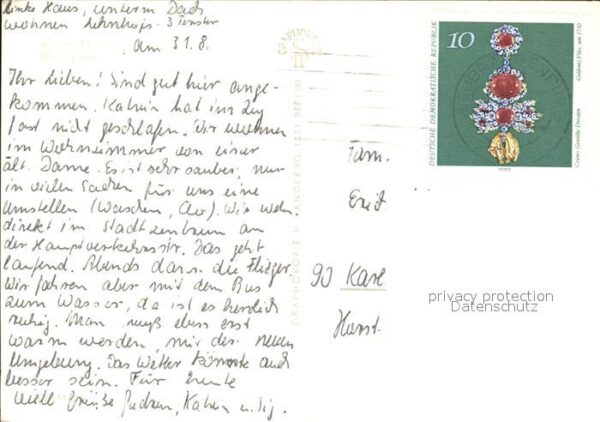 Linke Haus, unterm Dach
wohnen 3 Fenster
am 31.8.
Ihr Lieben! Sind gut hier ange-
kommen. Katrin hat im Zug
fast nicht geschlafen. Wir wohnen
im Wohnzimmer von einer
ält. Dame. Es ist sehr sauber, nur
in vielen Sachen für uns eine
Umstellen (Waschen, Clo). Wir wohn.
direkt im Stadtzentrum an
der Hauptverkehrsstr. Das geht
laufend. Abends dann die Flieger.
Wir fahren aber mit dem Bus
zum Wasser, da ist es herrlich
ruhig. Man muß eben erst
warm werden, mit der neuen
Umgebung. Das Wetter könnte auch
besser sein. Für heute
viele Grüße Katrin u.
Fam.
90 Karl
Horst.
10
DEUTSCHE DEMOKRATISCHE REPUBLIK
Goldenes Vlies, um 1750
Grünes Gewölbe Dresden
privacy protection
Datenschutz